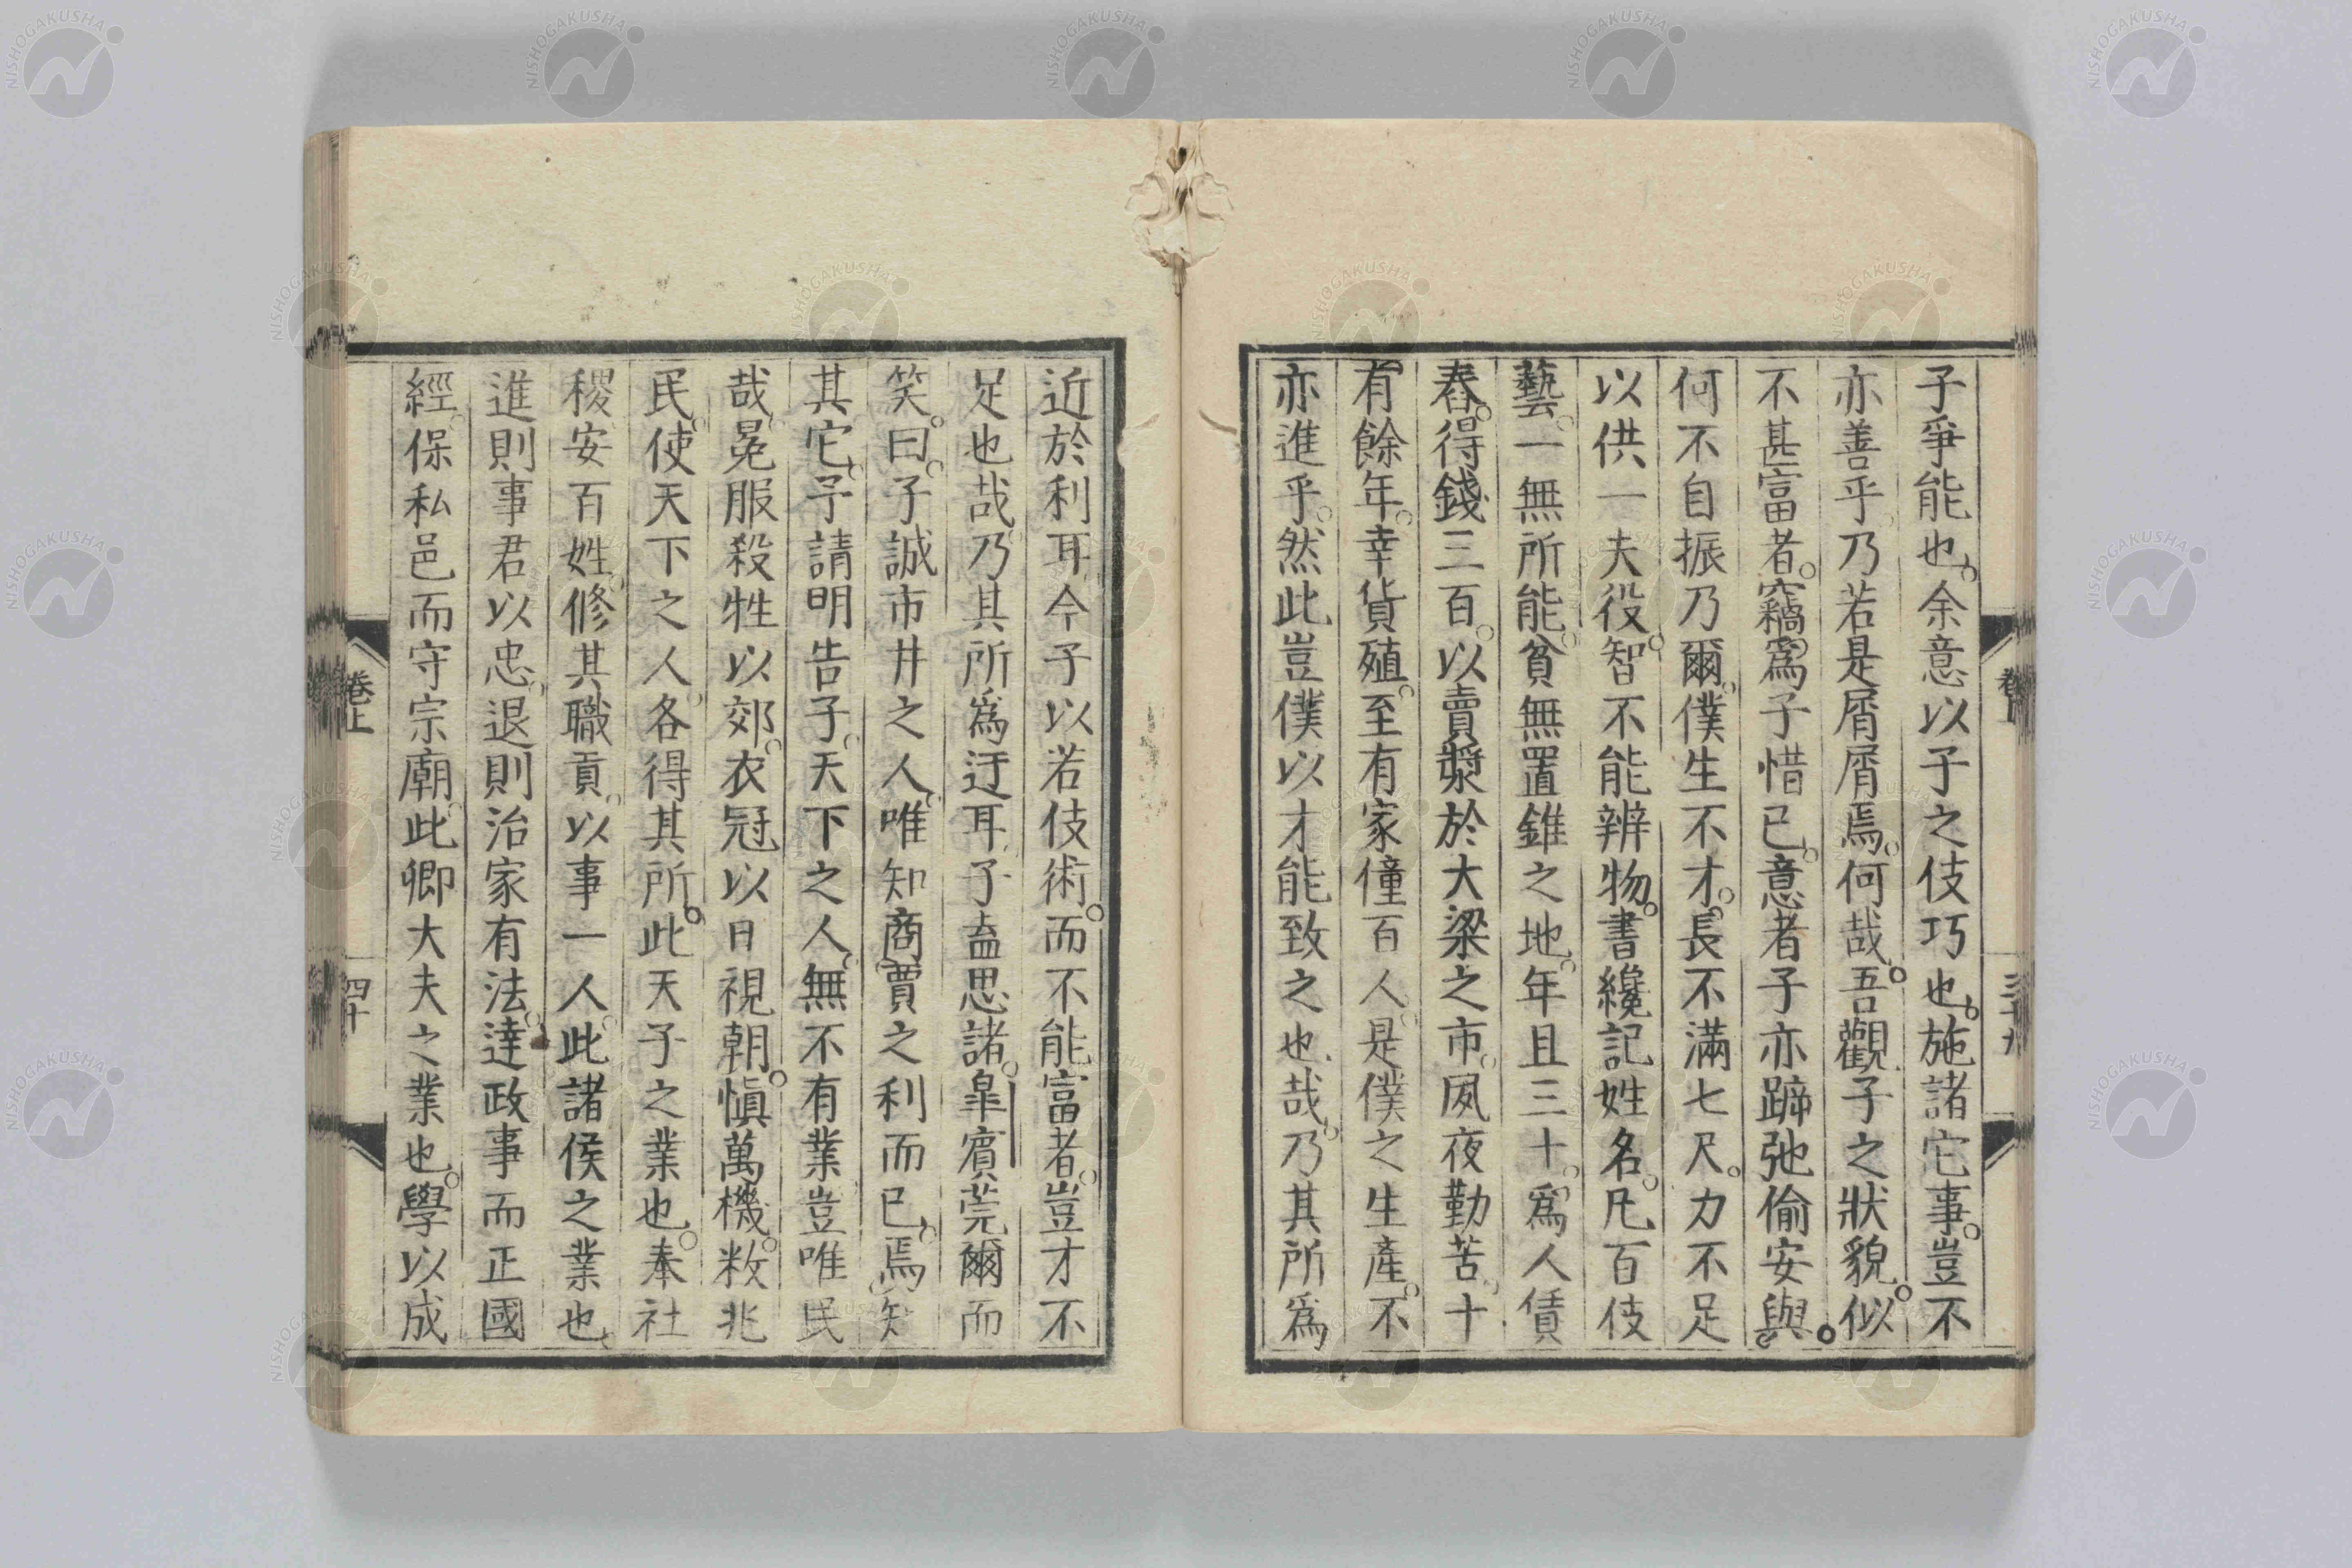 子爭能也。余意以子之伎巧也。施諸它事。豈不
亦善乎。乃若是屑屑焉。何哉。吾觀子之狀貌。似
不甚富者。竊爲子惜已。意者子亦蹏弛偷安與。
何不自振乃爾。僕生不才。長不滿七尺。力不足
以供一夫役。智不能辨物。書纔記姓名。凡百伎
藝。一無所能。貧無置錐之地。年且三十。爲人賃
舂。得錢三百。以賣漿於大梁之市。夙夜勤苦。十
有餘年。幸貨殖。至有家僮百人。是僕之生產。不
亦進乎。然此豈僕以才能致之也哉。乃其所爲
卷上
三十九
近於利耳今子以若伎術。而不能富者。豈才不
足也哉。乃其所爲迂耳。子盍思諸。皐賓莞爾而
笑。曰。子誠市井之人。唯知商賈之利而已。焉知
其它。予請明告子。天下之人。無不有業。豈唯民
哉。冕服殺牲以郊。衣冠以日視朝。愼萬機。敉兆
民。使天下之人。各得其所。此天子之業也。奉社
稷安百姓。修其職貢。以事一人。此諸侯之業也。
進則事君以忠。退則治家有法。達政事而正國
經。保私邑而守宗廟。此卿大夫之業也。學以成
卷上
四十
NISHOGAKUSHA